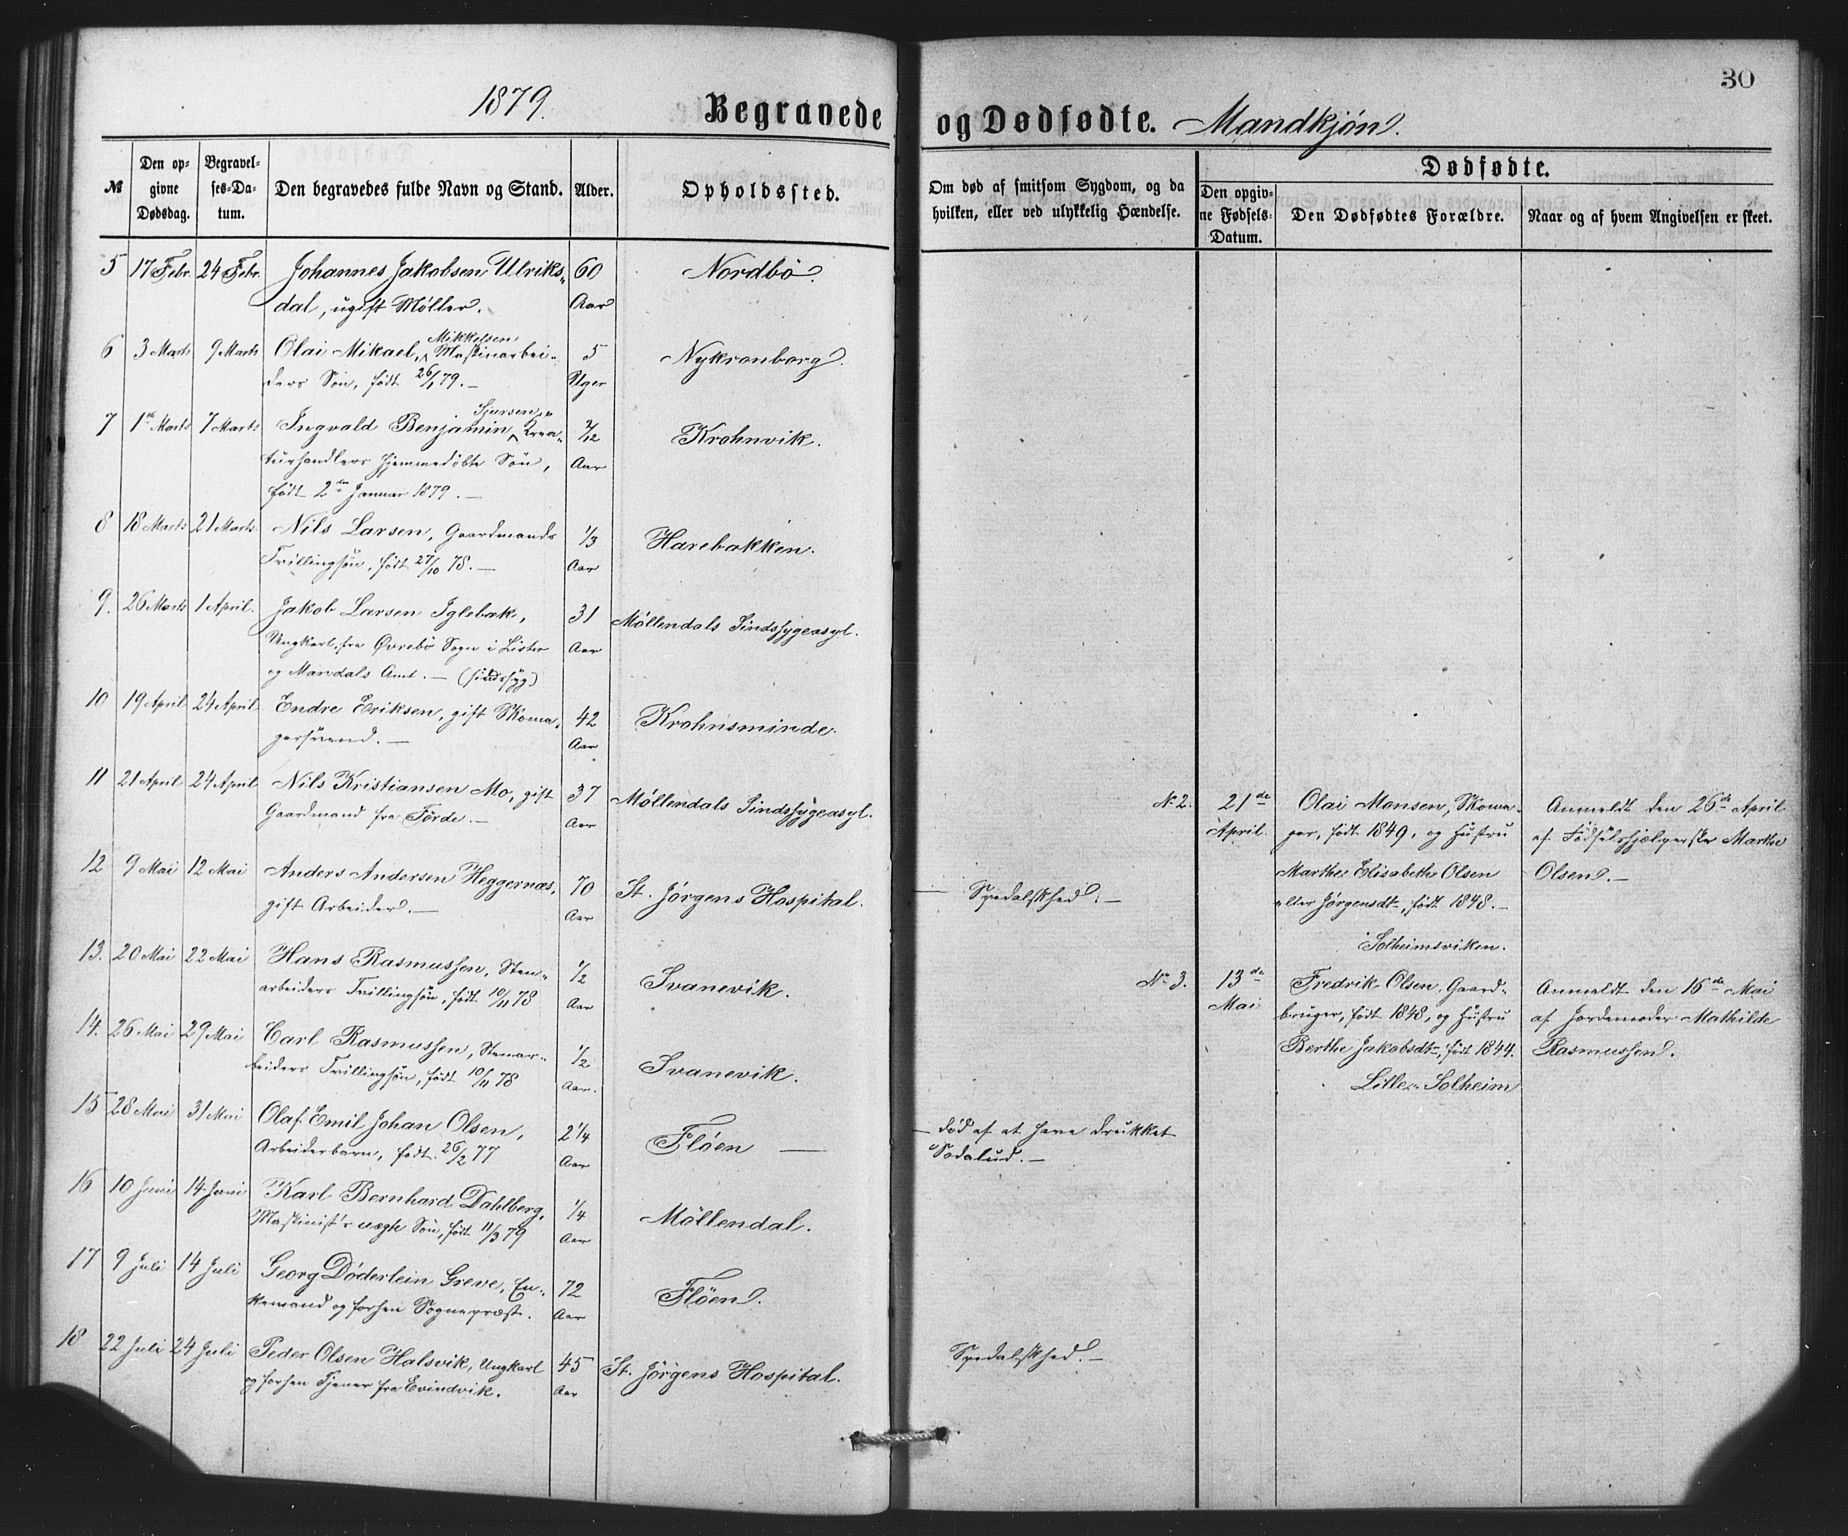 30
1879.
Begravede og Dødfødte. Mandkjøn.
№
Den op-
givne
Dødsdag.
Begravel-
ses-Da-
tum.
Den begravedes fulde Navn og Stand.
Alder.
Opholdssted.
Om død af smitsom Sygdom, og da
hvilken, eller ved ulykkelig Hændelse.
Dødfødte.
Den opgiv-
ne Fødsels-
Datum.
Den Dødfødtes Forældre.
Naar og af hvem Angivelsen er skeet.
5 17 Febr. 24 Febr. Johannes Jakobsen Ulriks- 60 Nordbø.
dal, ugift Møller. Aar
Mikkelsen
6 3 Marts 9 Marts Olai Mikael, Maskinarbei- 5 Nykronborg.
ders Søn, født 26/1 79. — Uger
Sjursen
7 1ste Marts 7 Marts Ingvald Benjamin, Krea- 2/12 Krohnvik.
turhandlers hjemmedøbte Søn, Aar
født 2den Januar 1879. —
8 18 Marts 21 Marts Nils Larsen, Gaardmands 1/3 Harebakken.
Tvillingsøn, født 27/10 78. — Aar
9. 26 Marts 1 April. Jakob Larsen Iglebæk, 31 Møllendals Sindssygeasyl.
Ungkarl, fra Øvrebø Sogn i Lister Aar
og Mandals Amt. — (sindssyg)
10 19 April 24 April. Endre Eriksen, gift Skoma- 42 Krohnsminde.
gersvend. — Aar
11 21 April 24 April Nils Kristiansen Mo, gift 37 Møllendals Sindssygeasyl.
Gaardmand fra Førde. — Aar
12 9 Mai 12 Mai Anders Andersen Heggernæs, 70 St. Jørgens Hospital. — Spedalskhed. —
gift Arbeider. — Aar
13. 20 Mai 22 Mai Hans Rasmussen, Sten- 1/2 Svanevik.
arbeiders Tvillingsøn, født 10/11 78 Aar
14. 26 Mai 29 Mai Carl Rasmussen, Stenar- 1/2 Svanevik.
beiders Tvillingsøn, født 10/11 78 Aar.
15 28 Mai 31 Mai Olaf Emil Johan Olsen, 2 1/4 Fløen — — død af at have drukket
Arbeiderbarn, født 26/2 77 Aar Sodalud. —
16 10 Juni 14 Juni Karl Bernhard Dahlberg, 1/4 Møllendal.
Maskinist's uægte Søn, født 11/3 79 Aar
17 9 Juli 14 Juli Georg Døderlein Greve, En- 72 Fløen.
kemand og forhen Sognepræst. Aar
18 22 Juli 24 Juli Peder Olsen Halsvik, Ungkarl 45 St. Jørgens Hospital. Spedalskhed. —
og forhen Tjener fra Evindvik. Aar
No 2. 21de Olai Monsen, Skoma- Anmeldt den 26de April
April. ger, født 1849, og Hustru af Fødselshjælperske Marthe
Marthe Elisabeth Olsen Olsen. —
eller Jørgensdtr, født 1848. —
Solheimsviken.
No 3. 13de Fredrik Olsen, Gaard- Anmeldt den 16de Mai
Mai bruger, født 1848, og Hustru af Jordemoder Mathilde
Berthe Jakobsdtr, født 1844. Rasmussen.
Lille Solheim